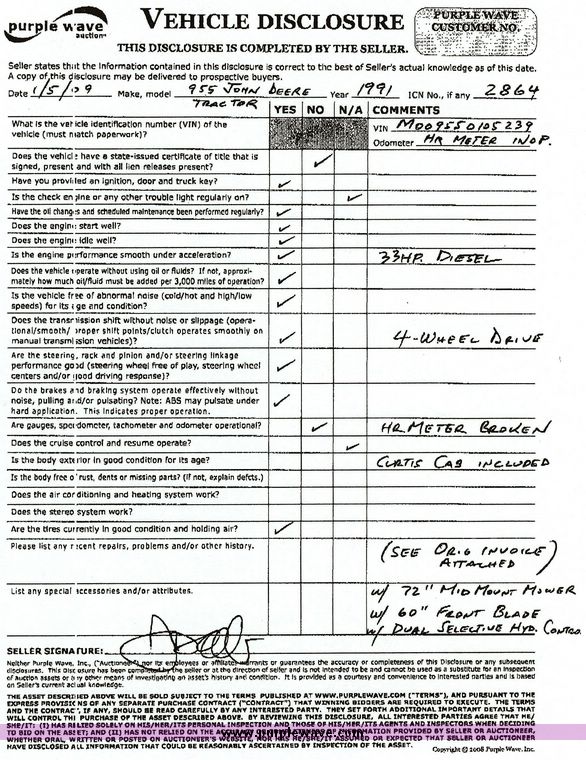 purple wave
auction
VEHICLE DISCLOSURE
PURPLE WAVE
CUSTOMER NO.
THIS DISCLOSURE IS COMPLETED BY THE SELLER.
Seller states that the information contained in this disclosure is correct to the best of Seller's actual knowledge as of this date.
A copy of this disclosure may be delivered to prospective buyers.
Date 1/5/09 Make, model 955 JOHN DEERE Year 1991 ICN No., if any 2864
TRACTOR
YES NO N/A COMMENTS
What is the vehicle identification number (VIN) of the VIN M009550105239
vehicle (must match paperwork)? Odometer HR METER INOP.
Does the vehicle have a state-issued certificate of title that is
signed, present and with all lien releases present?
Have you provided an ignition, door and truck key?
Is the check engine or any other trouble light regularly on?
Have the oil changes and scheduled maintenance been performed regularly?
Does the engine start well?
Does the engine idle well?
Is the engine performance smooth under acceleration? 33HP. DIESEL
Does the vehicle operate without using oil or fluids? If not, approxi-
mately how much oil/fluid must be added per 3,000 miles of operation?
Is the vehicle free of abnormal noise (cold/hot and high/low
speeds) for its age and condition?
Does the transmission shift without noise or slippage (opera-
tional/smooth/ proper shift points/clutch operates smoothly on
manual transmission vehicles)? 4-WHEEL DRIVE
Are the steering, rack and pinion and/or steering linkage
performance good (steering wheel free of play, steering wheel
centers and/or good driving response)?
Do the brakes and braking system operate effectively without
noise, pulling and/or pulsating? Note: ABS may pulsate under
hard application. This indicates proper operation.
Are gauges, speedometer, tachometer and odometer operational? HR METER BROKEN
Does the cruise control and resume operate?
Is the body exterior in good condition for its age? CURTIS CAB INCLUDED
Is the body free of rust, dents or missing parts? (if not, explain defcts.)
Does the air conditioning and heating system work?
Does the stereo system work?
Are the tires currently in good condition and holding air?
Please list any recent repairs, problems and/or other history. (SEE ORIG INVOICE)
ATTACHED
List any special accessories and/or attributes. w/ 72" MID MOUNT MOWER
w/ 60" FRONT BLADE
w/ DUAL SELECTIVE HYD. CONTROL
SELLER SIGNATURE:
Neither Purple Wave, Inc., ("Auctioneer") nor its employees or affiliates warrants or guarantees the accuracy or completeness of this Disclosure or any subsequent
disclosures. This Disclosure has been completed by the seller or at the direction of seller and is not intended to and cannot be used as a substitute for an inspection
of auction assets or any other means of investigating an asset's history and condition. It is provided as a courtesy and convenience to interested parties and is based
on Seller's current actual knowledge.
THE ASSET DESCRIBED ABOVE WILL BE SOLD SUBJECT TO THE TERMS PUBLISHED AT WWW.PURPLEWAVE.COM ("TERMS"), AND PURSUANT TO THE
EXPRESS PROVISIONS OF ANY SEPARATE PURCHASE CONTRACT ("CONTRACT") THAT WINNING BIDDERS ARE REQUIRED TO EXECUTE. THE TERMS
AND THE CONTRACT, IF ANY, SHOULD BE READ CAREFULLY BY ANY INTERESTED PARTY. THEY SET FORTH ADDITIONAL IMPORTANT DETAILS THAT
WILL CONTROL THE PURCHASE OF THE ASSET DESCRIBED ABOVE. BY REVIEWING THIS DISCLOSURE, ALL INTERESTED PARTIES AGREE THAT HE/
SHE/IT: (I) HAS RELIED SOLELY ON HIS/HER/ITS PERSONAL INSPECTION AND THOSE OF HIS/HER/ITS AGENTS AND INSPECTORS WHEN DECIDING
TO BID ON THE ASSET; AND (II) HAS NOT RELIED ON THE ACCURACY OR COMPLETENESS OF INFORMATION PROVIDED BY SELLER OR AUCTIONEER
WHETHER ORAL, WRITTEN OR POSTED ON AUCTIONEER'S WEBSITE, NOR HAS HE/SHE/IT ASSUMED OR EXPECTED THAT SELLER OR AUCTIONEER
HAVE DISCLOSED ALL INFORMATION THAT COULD BE REASONABLY ASCERTAINED BY INSPECTION OF THE ASSET.
www.purplewave.com
Copyright © 2008 Purple Wave, Inc.